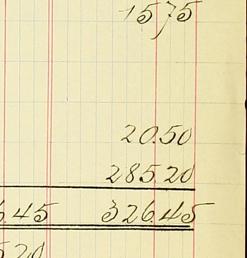 15 75
20.50
285.20
.45 326.45
20